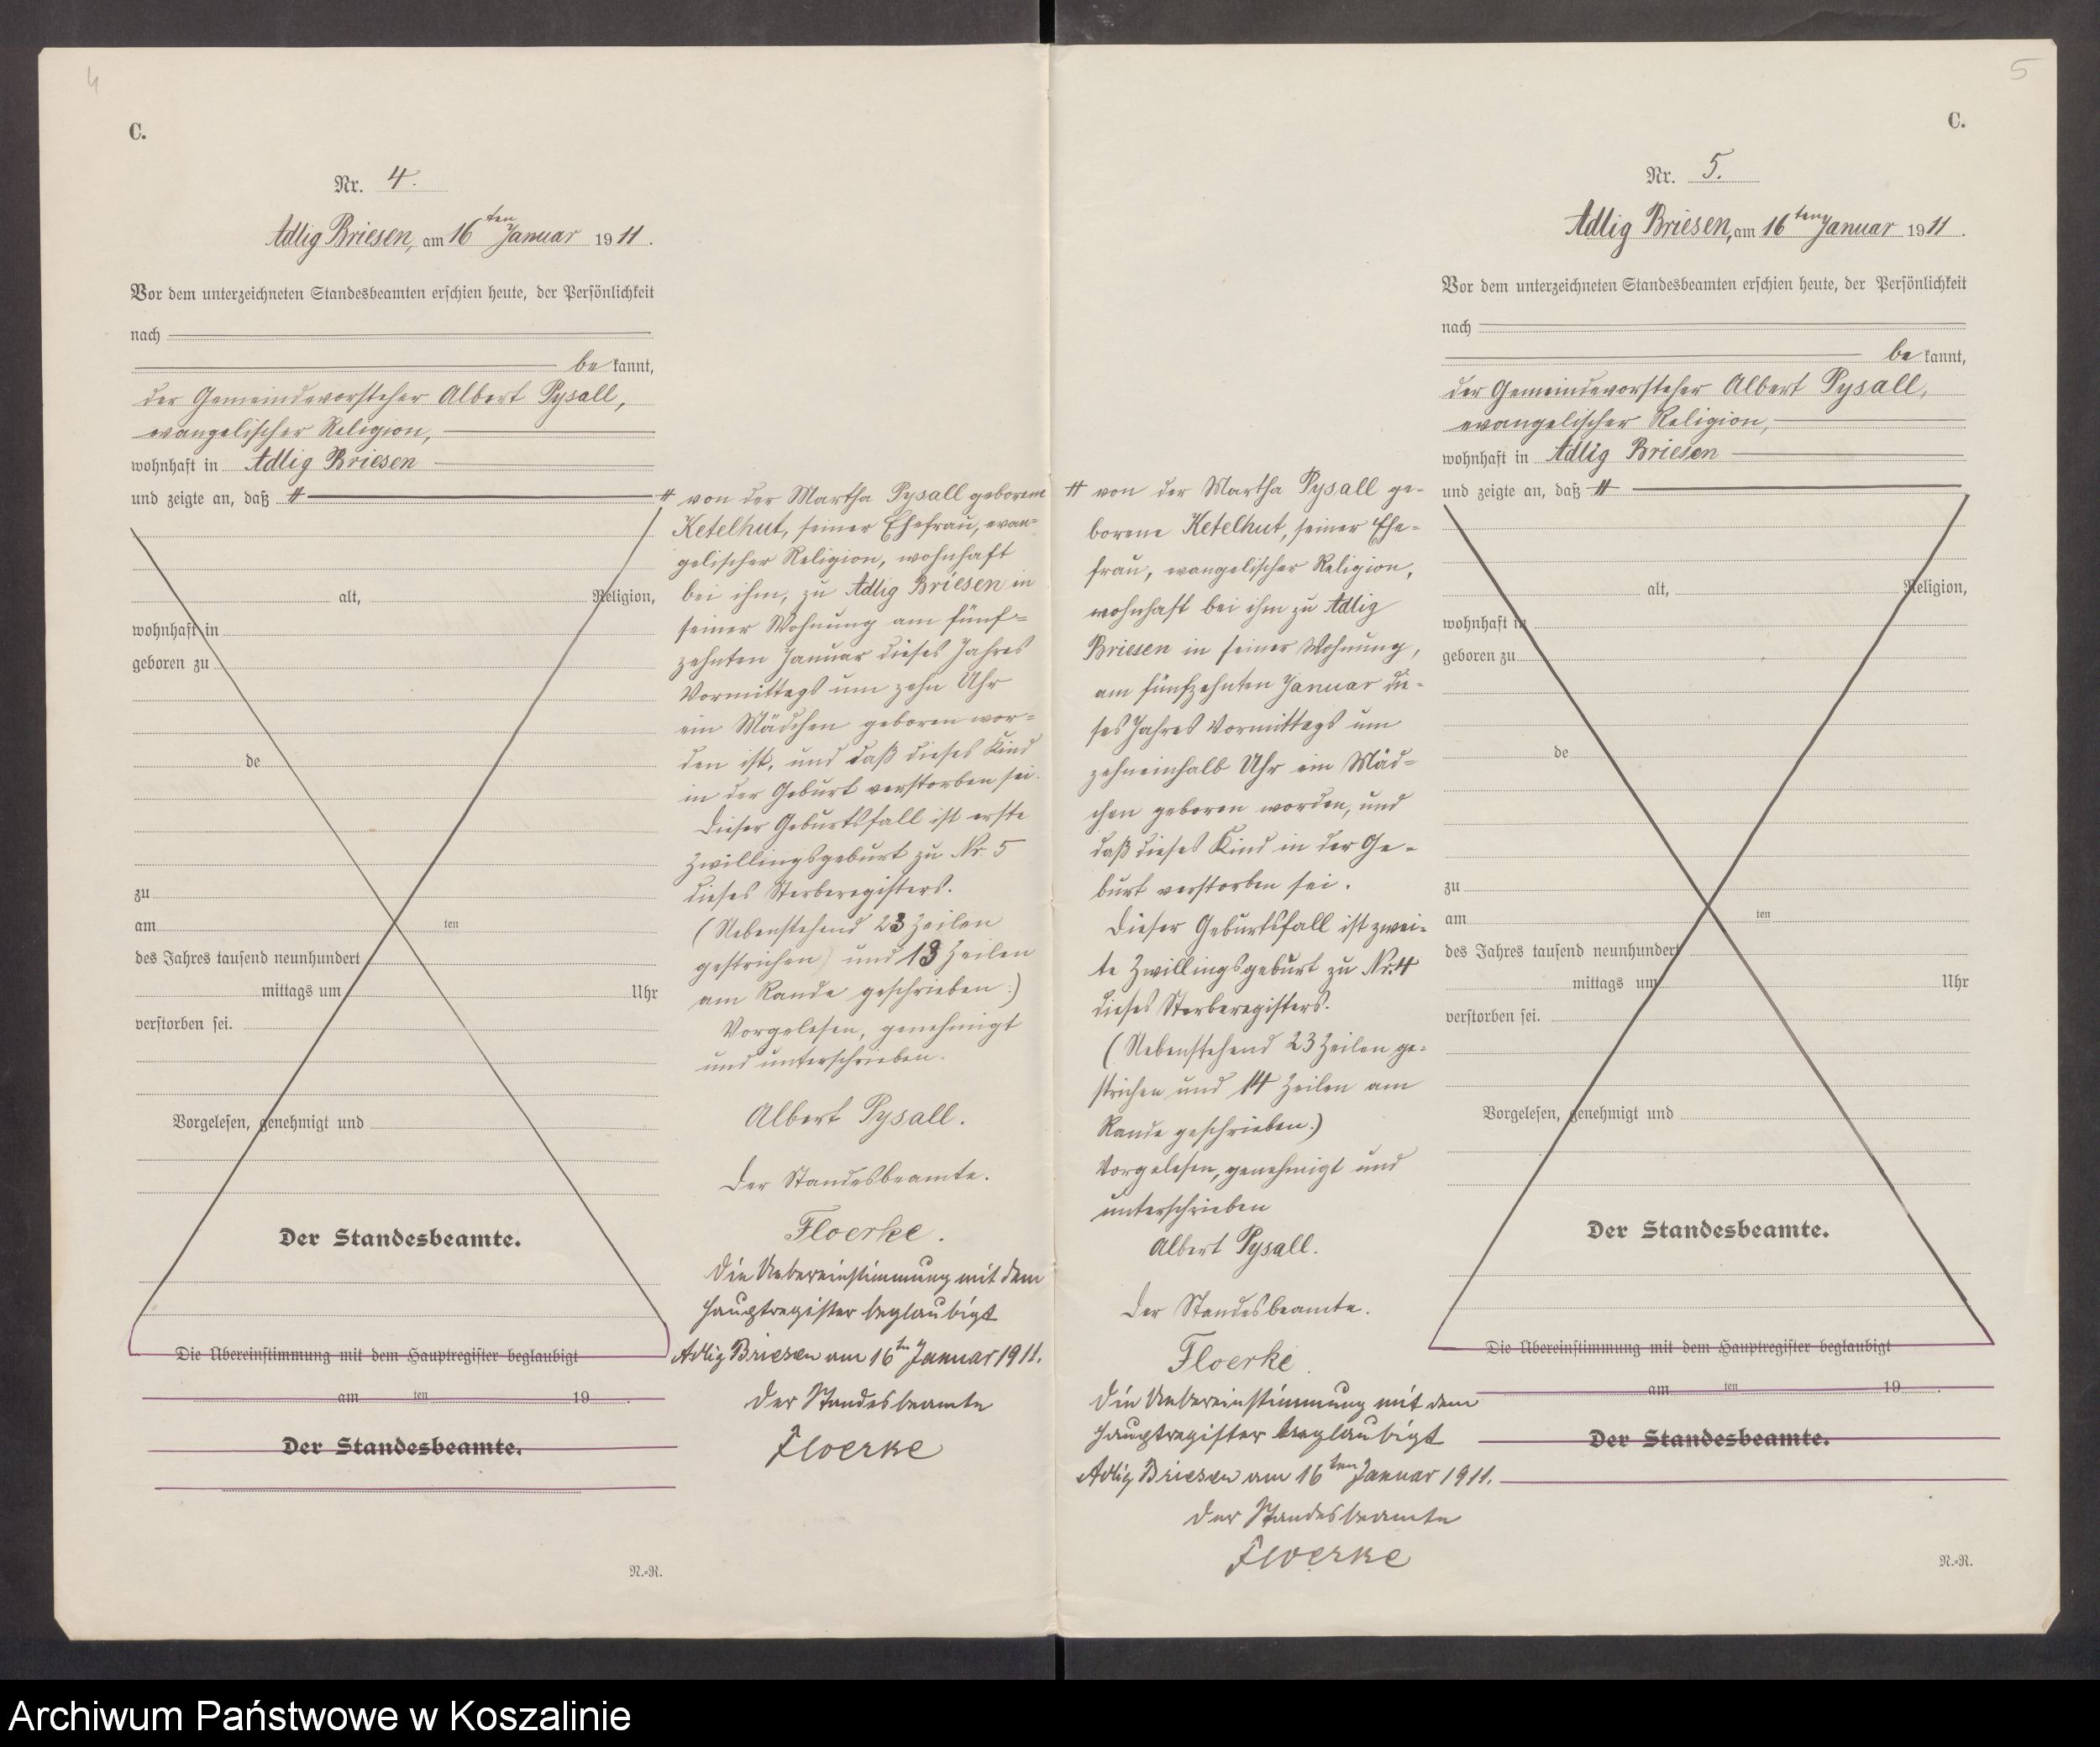 4
C.
Nr. 4.
Adlig Briesen, am 16ten Januar 1911.
Vor dem unterzeichneten Standesbeamten erschien heute, der Persönlichkeit
nach
be kannt,
der Gemeindevorsteher Albert Pysall,
evangelischer Religion,
wohnhaft in Adlig Briesen
und zeigte an, daß #
alt, Religion,
wohnhaft in
geboren zu
de
zu
am ten
des Jahres tausend neunhundert
mittags um Uhr
verstorben sei.
Vorgelesen, genehmigt und
Der Standesbeamte.
Die Übereinstimmung mit dem Hauptregister beglaubigt
am ten 19 .
Der Standesbeamte.
N.-R.
# von der Martha Pysall geborene
Ketelhut, seiner Ehefrau, evan-
gelischer Religion, wohnhaft
bei ihm, zu Adlig Briesen in
seiner Wohnung am fünf-
zehnten Januar dieses Jahres
Vormittags um zehn Uhr
ein Mädchen geboren wor-
den ist, und daß dieses Kind
in der Geburt verstorben sei.
Dieser Geburtsfall ist erste
Zwillingsgeburt zu Nr. 5
dieses Sterberegisters.
(Nebenstehend 23 Zeilen
gestrichen) und 13 Zeilen
am Rande geschrieben.)
Vorgelesen, genehmigt
und unterschrieben.
Albert Pysall.
Der Standesbeamte.
Floerke.
Die Uebereinstimmung mit dem
Hauptregister beglaubigt
Adlig Briesen am 16ten Januar 1911.
Der Standesbeamte
Floerke
5
C.
Nr. 5.
Adlig Briesen, am 16ten Januar 1911.
Vor dem unterzeichneten Standesbeamten erschien heute, der Persönlichkeit
nach
be kannt,
der Gemeindevorsteher Albert Pysall,
evangelischer Religion,
wohnhaft in Adlig Briesen
und zeigte an, daß #
alt, Religion,
wohnhaft in
geboren zu
de
zu
am ten
des Jahres tausend neunhundert
mittags um Uhr
verstorben sei.
Vorgelesen, genehmigt und
Der Standesbeamte.
Die Übereinstimmung mit dem Hauptregister beglaubigt
am ten 19 .
Der Standesbeamte.
N.-R.
# von der Martha Pysall ge-
borene Ketelhut, seiner Ehe-
frau, evangelischer Religion,
wohnhaft bei ihm zu Adlig
Briesen in seiner Wohnung,
am fünfzehnten Januar die-
ses Jahres Vormittags um
zehneinhalb Uhr ein Mäd-
chen geboren worden, und
daß dieses Kind in der Ge-
burt verstorben sei.
Dieser Geburtsfall ist zwei-
te Zwillingsgeburt zu Nr. 4
dieses Sterberegisters.
(Nebenstehend 23 Zeilen ge-
strichen und 14 Zeilen am
Rande geschrieben.)
Vorgelesen, genehmigt und
unterschrieben
Albert Pysall.
Der Standesbeamte.
Floerke
Die Uebereinstimmung mit dem
Hauptregister beglaubigt
Adlig Briesen am 16ten Januar 1911.
Der Standesbeamte
Floerke
Archiwum Państwowe w Koszalinie